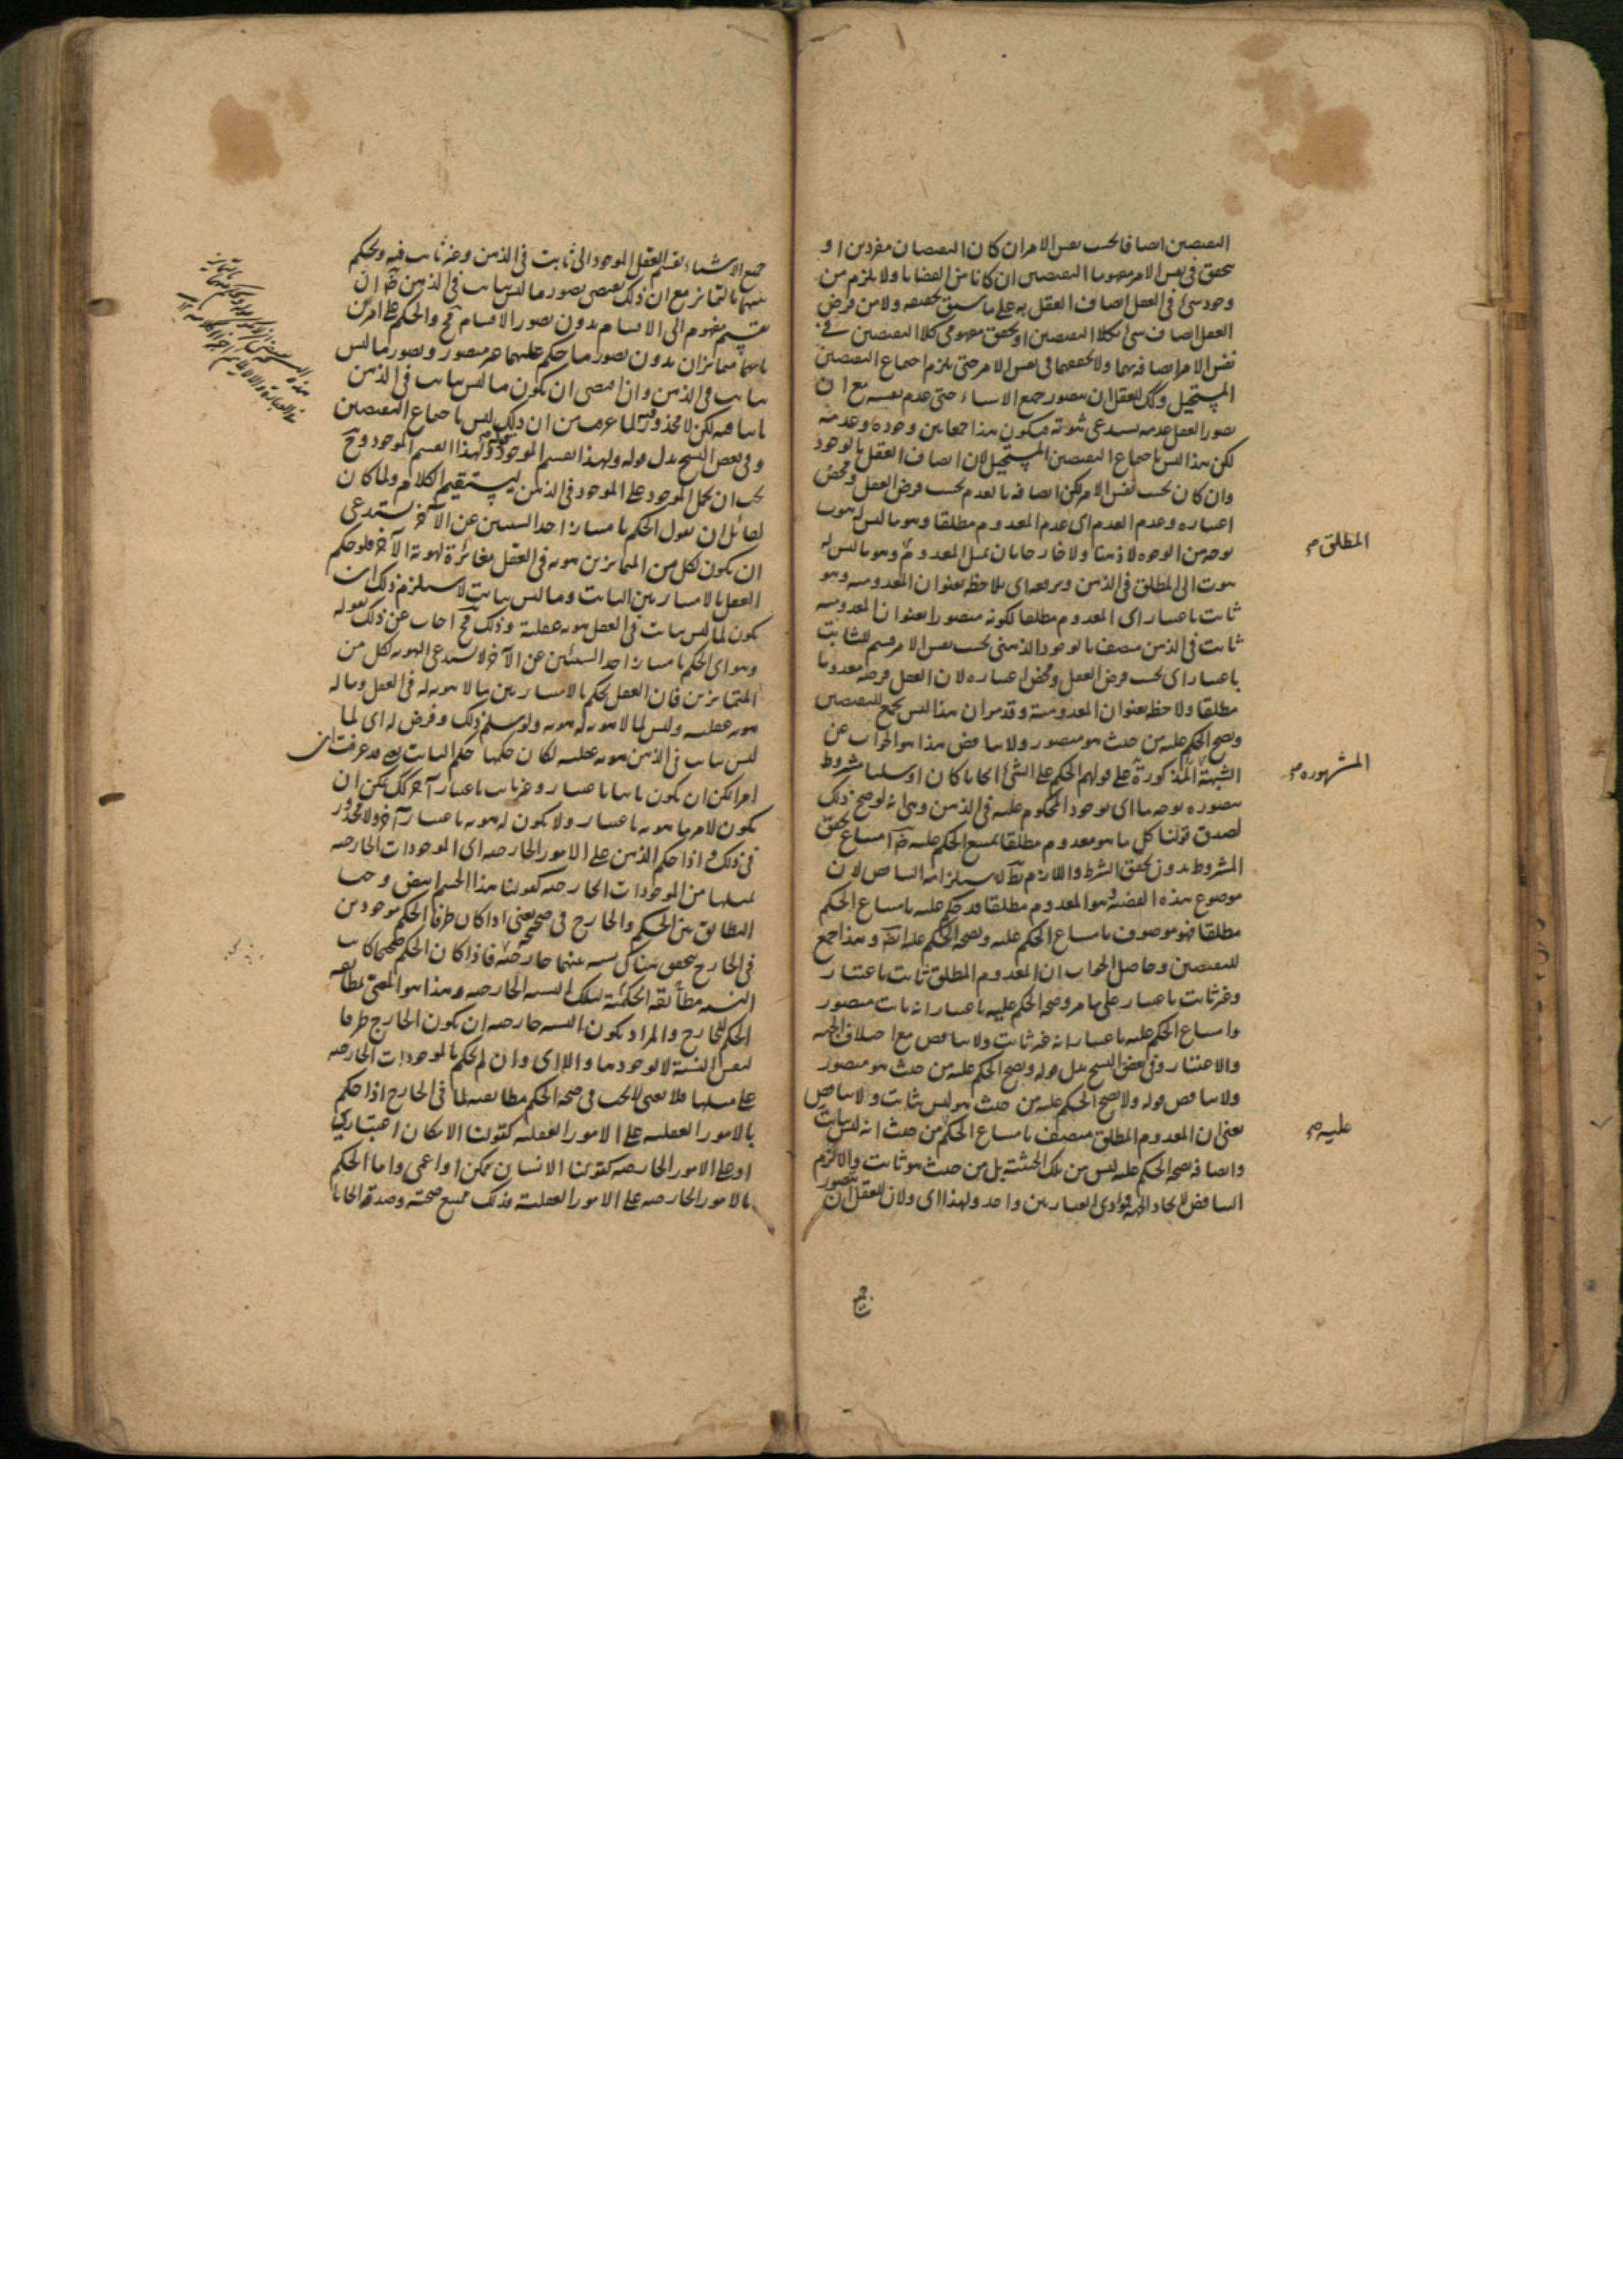 النقيضين اتصافا بحسب نفس الامر ان كان النقيضان مفردين او
يتحقق في نفس الامر مضمونا النقيضين ان كانا من القضايا ولا يلزم من
وجود شئ في العقل اتصاف العقل به على ما سبق تحقيقه ولا من فرض
العقل اتصاف شئ بكلا النقيضين او تحقق مفهومى كلا النقيضين في
نفس الامر اتصافه بهما ولا تحققهما في نفس الامر حتى يلزم اجتماع النقيضين
المستحيل وكك للعقل ان يتصور جميع الاشياء حتى عدم نفسه مع ان
تصور العقل عدمه يستدعى ثبوته فيكون هذا جمعا بين وجوده وعدمه
لكن هذا ليس باجتماع النقيضين المستحيل لان اتصاف العقل بالوجود
وان كان بحسب نفس الامر لكن اتصافه بالعدم بحسب فرض العقل ومحض
اعتباره وعدم العدم اى عدم المعدوم مطلقا وهو ما ليس له ثبوت
بوجه من الوجوه لا ذهنا ولا خارجا بان يمثل المعدوم وهو ما ليس له
المطلق صح
ثبوت الى المطلق في الذهن ويرفعه اى يلاحظ بعنوان المعدومية وهو
ثابت باعتبار اى المعدوم مطلقا لكونه متصورا بعنوان المعدومية
ثابت في الذهن متصف بالوجود الذهنى بحسب نفس الامر قسيم للثابت
باعتبار اى بحسب فرض العقل ومحض اعتباره لان العقل فرضه معدوما
مطلقا ولاحظ بعنوان المعدومية وقد مر ان هذا ليس بجمع للنقيضين
ويصح الحكم عليه من حيث هو متصور ولا تناقض هذا هو الجواب عن
الشبهة المذكورة على قولهم الحكم على الشئ ايجابا كان او سلبا مشروط
المشهوره صح
بتصوره بوجه ما اى بوجود المحكوم عليه في الذهن وهى انه لو صح ذلك
لصدق قولنا كل ما هو معدوم مطلقا يمتنع الحكم عليه ضرا امتناع تحقق
المشروط بدون تحقق الشرط واللازم بط لاستلزامه التناقض لان
موضوع هذه القضية هو المعدوم مطلقا قد حكم عليه بامتناع الحكم
مطلقا فهو موصوف بامتناع الحكم عليه وبصحة الحكم عليه ايضا وهذا جمع
للنقيضين وحاصل الجواب ان المعدوم المطلق ثابت باعتبار
وغير ثابت باعتبار على ما مر وصحة الحكم عليه باعتبار انه ثابت متصور
وامتناع الحكم عليه باعتبار انه غير ثابت ولا تناقض مع اختلاف الجهة
والاعتبار وفي بعض النسخ بدل قوله ويصح الحكم عليه من حيث هو متصور
ولا تناقض قوله ولا يصح الحكم عليه من حيث هو ليس بثابت والا تناقض
يعنى ان المعدوم المطلق متصف بامتناع الحكم من حيث انه ليس بثابت
عليه صح
واتصافه بصحة الحكم عليه ليس من تلك الحيثية بل من حيث هو ثابت والا لزم
التناقض لاتحاد الجهة فمؤدى العبارتين واحد ولهذا اى ولان للعقل ان يتصور
جميع
جميع الاشياء يقسم العقل الموجود الى ثابت في الذهن وغير ثابت فيه ويحكم
بينهما بالتمايز مع ان ذلك يقتضى تصور ما ليس بثابت في الذهن ضرا ان
تقسيم مفهوم الى الاقسام بدون تصور الاقسام مح والحكم على امرين
بانهما متمايزان بدون تصور ما حكم عليهما غير متصور وتصور ما ليس
بثابت في الذهن وان اقتضى ان يكون ما ليس بثابت في الذهن
ثابتا فيه لكن لا محذور فيه لما عرفت من ان ذلك ليس باجتماع النقيضين
وفي بعض النسخ بدل قوله ولهذا نقسم الموجود قوله ولهذا انقسم الموجود وح
يجب ان يحمل الموجود على الموجود في الذهن ليستقيم الكلام ولما كان
لقائل ان يقول الحكم بامتياز احد الشيئين عن الآخر يستدعى
ان يكون لكل من المتمايزين هوية في العقل مغائرة لهوية الآخر فلو حكم
العقل بالامتياز بين الثابت وما ليس بثابت لاستلزم ذلك ان
يكون لما ليس بثابت في العقل هوية عقلية وذلك مح اجاب عن ذلك بقوله
وهو اى الحكم بامتياز احد الشيئين عن الآخر لا يستدعى الهوية لكل من
المتمايزين فان العقل يحكم بالامتياز بين ما لا هوية له في العقل وما له
هوية عقلية وليس لما لا هوية له هوية ولو سلم ذلك وفرض له اى لما
ليس بثابت في الذهن هوية عقلية لكان حكمها حكم الثابت وقد عرفت ان
امرا يمكن ان يكون ثابتا باعتبار وغير ثابت باعتبار آخر كك يمكن ان
يكون لامر ما هوية باعتبار ولا يكون له هوية باعتبار آخر ولا محذور
في ذلك واذا حكم الذهن على الامور الخارجية اى الموجودات الخارجية
بمثلها من الموجودات الخارجية كقولنا هذا الجسم ابيض وجب
التطابق بين الحكم والخارج في صحيحه يعنى اذا كان طرفا الحكم موجودين
في الخارج يتحقق هناك نسبة بينهما خارجية فاذا كان الحكم صحيحا كانت
النسبة مطابقة الحكمية لتلك النسبة الخارجية وهذا هو المعنى بمطابقة
الحكم للخارج والمراد بكون النسبة خارجية ان يكون الخارج ظرفا
لنفس النسبة لا لوجودها والا اى وان لم يحكم بالموجودات الخارجية
على مثلها فلا يعنى لا يجب في صحة الحكم مطابقته لما في الخارج اذا حكم
بالامور العقلية على الامور العقلية كقولنا الامكان اعتبارى
او على الامور الخارجية كقولنا الانسان ممكن او اعمى واما الحكم
بالامور الخارجية على الامور العقلية فذلك يمتنع صحته وصدقه ايجابا